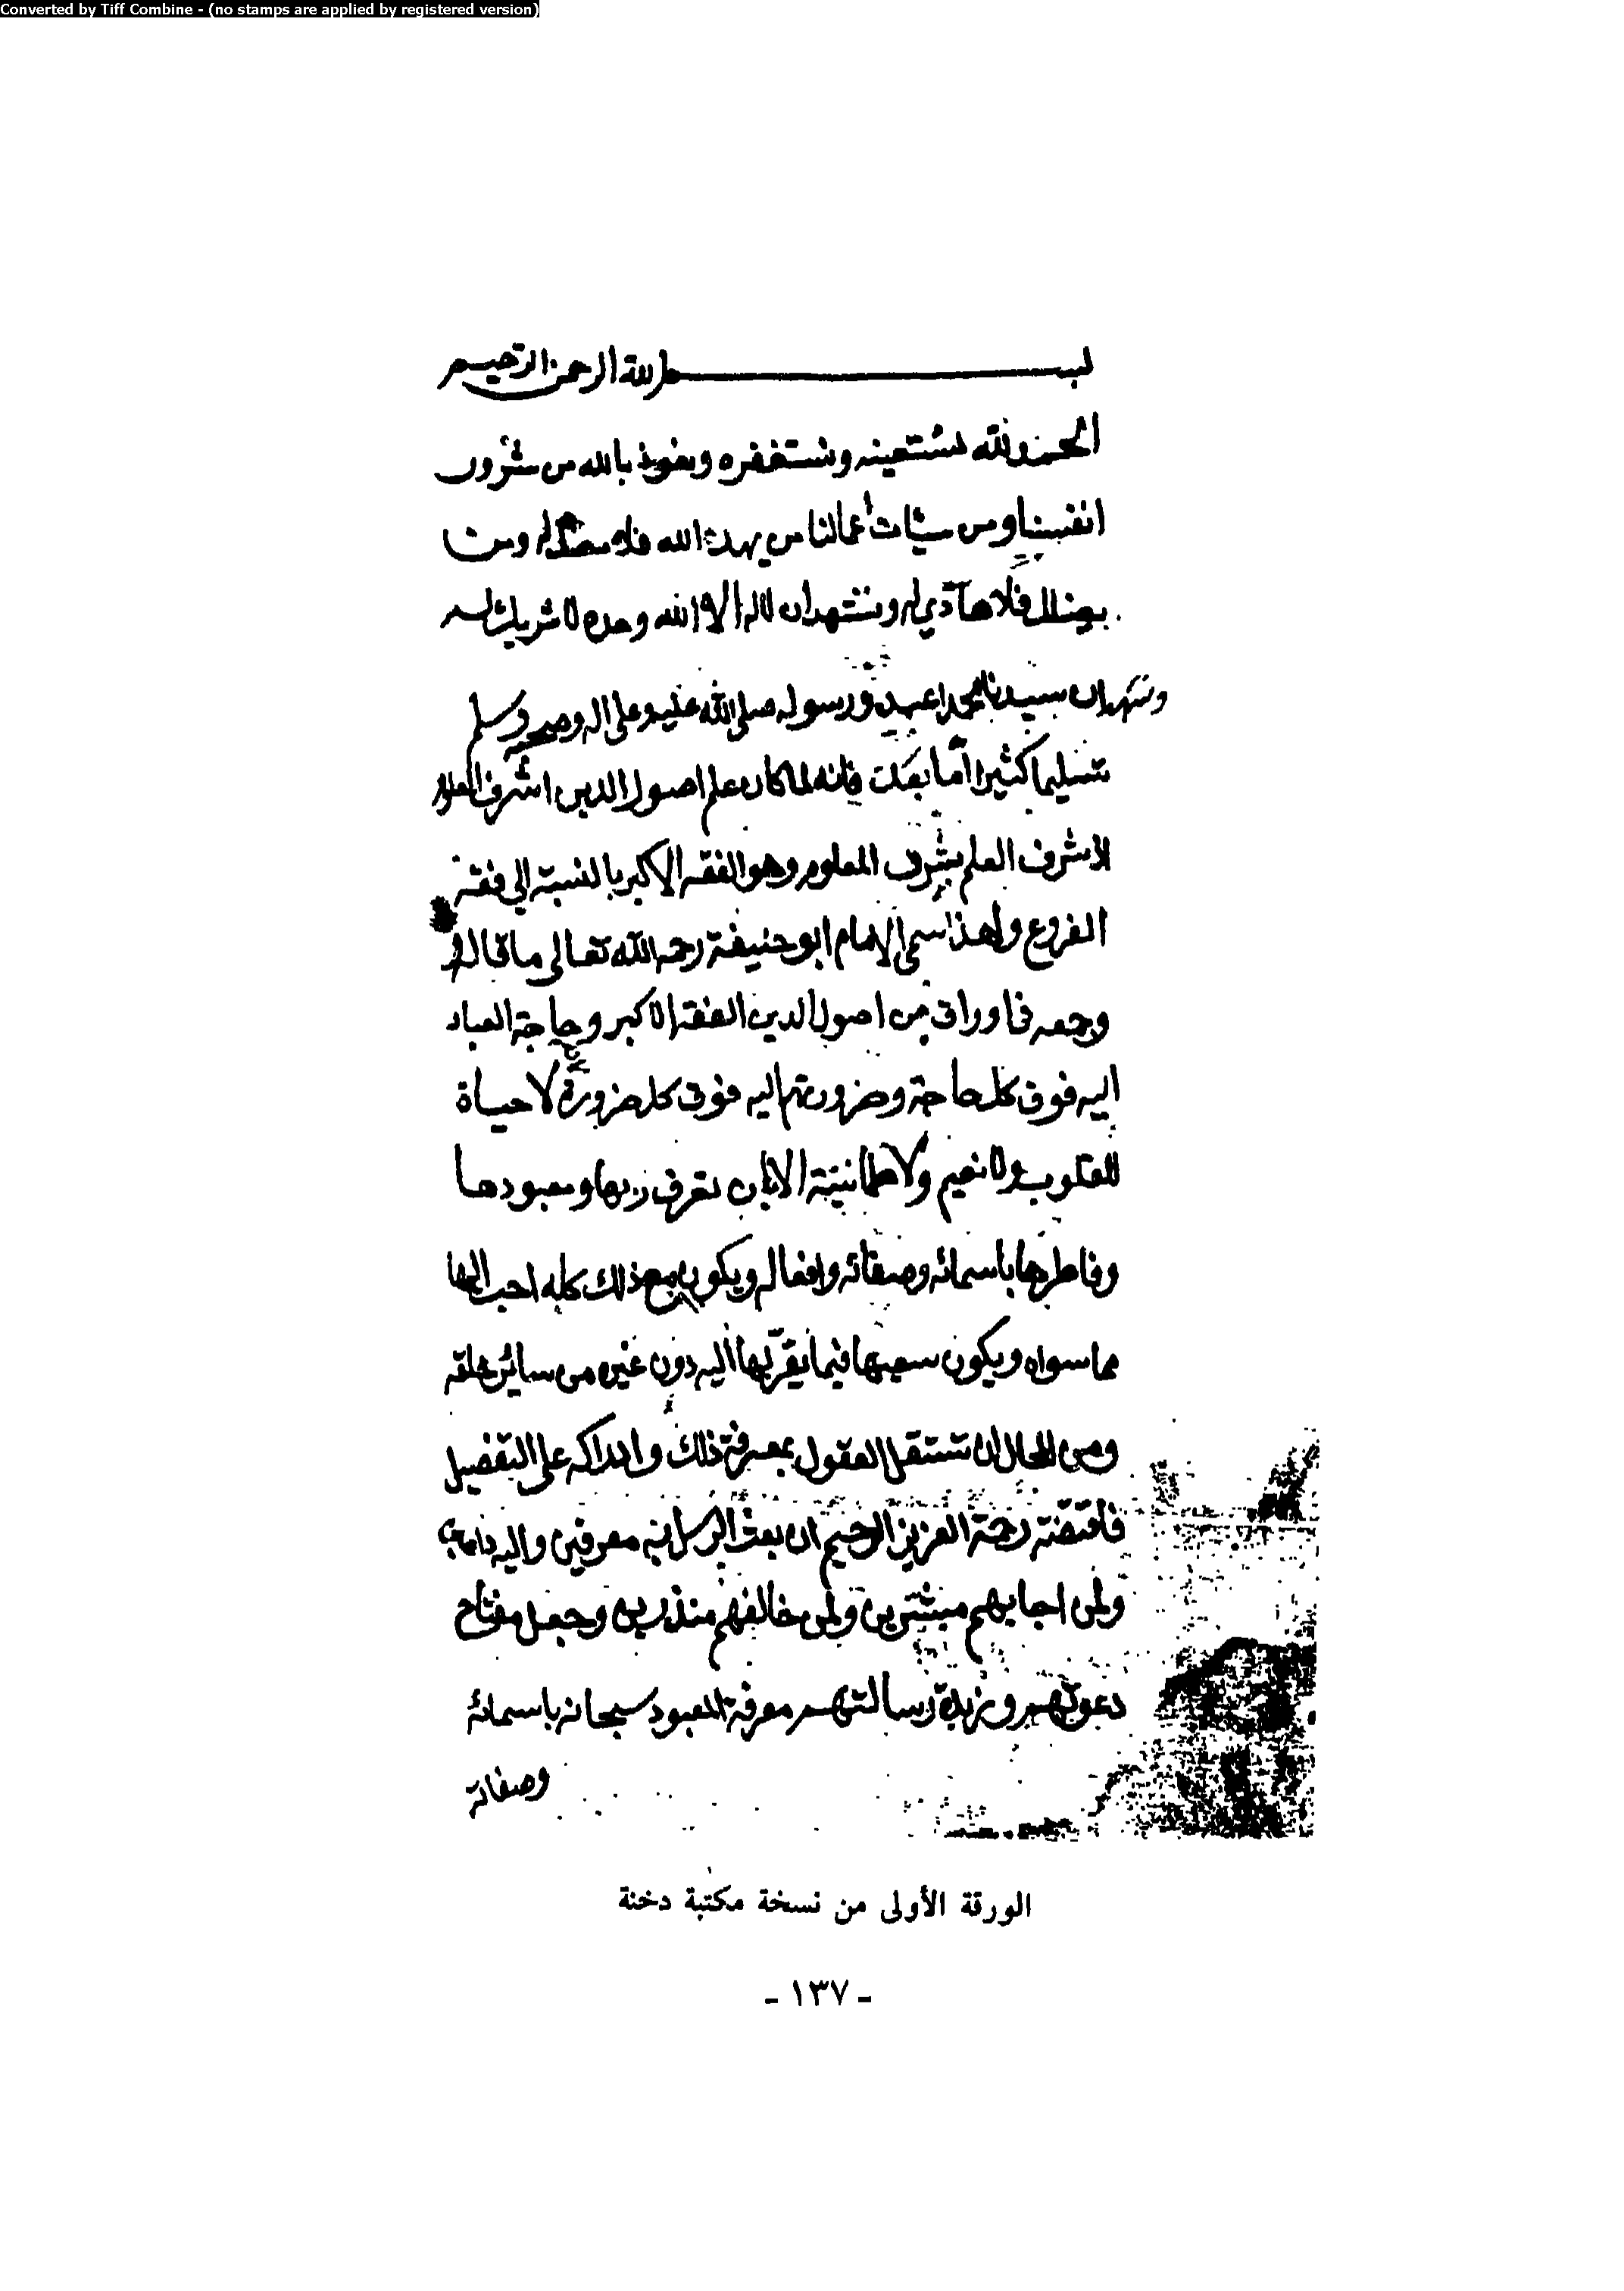 Converted by Tiff Combine - (no stamps are applied by registered version)
بسم الله الرحمن الرحيم
الحمد لله نستعينه ونستغفره ونعوذ بالله من شرور
انفسنا ومن سيئات أعمالنا من يهد الله فلا مضل له ومن
يضلل فلا هادي له ونشهد ان لا اله الا الله وحده لا شريك له
ونشهد ان سيدنا محمدا عبده ورسوله صلى الله عليه وعلى اله وصحبه وسلم
تسليما كثيرا أما بعد فانه لما كان علم اصول الدين اشرف العلوم
اذ شرف العلم بشرف المعلوم وهو الفقه الاكبر بالنسبة الي فقه
الفروع ولهذا سمى الامام ابو حنيفة رحمه الله تعالى ما قاله
وجمعه في اوراق من اصول الدين الفقه الاكبر وحاجة العباد
اليه فوق كل حاجة وضرورتهم اليه فوق كل ضرورة لا حياة
للقلوب ولا نعيم ولا طمانينة الا بان تعرف ربها ومعبودها
وفاطرها باسمائه وصفاته وافعاله ويكون مع ذلك كله احب اليها
مما سواه ويكون سعيها فيما يقربها اليه دون غيره من سائر خلقه
ومن المحال ان تستقل العقول بمعرفة ذلك وادراكه على التفصيل
فاقتضت رحمة العزيز الرحيم ان بعث الرسل به معرفين واليه داعين
ولمن اجابهم مبشرين ولمن خالفهم منذرين وجعل مفتاح
دعوتهم وزبدة رسالتهم معرفة المعبود سبحانه باسمائه
وصفاته
الورقة الأولى من نسخة مكتبة دخنة
- ١٣٧ -